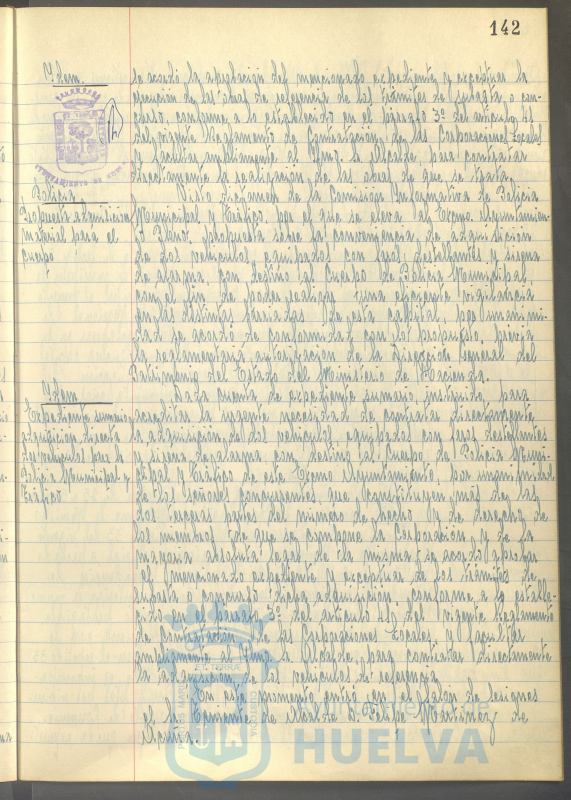 142
Idem.
se acordó la aprobación del mencionado expediente y exceptuar la
ejecución de las obras de referencia de los trámites de subasta o con-
curso, conforme a lo establecido en el párrafo 3º del artículo 41
del vigente Reglamento de Contratación de las Corporaciones Locales
y facultar ampliamente al Iltmo. Sr. Alcalde para contratar
directamente la realización de las obras de que se trata.
Policía
Propuesta adquisición
material para el
cuerpo
Visto dictamen de la Comisión Informativa de Policía
Municipal y Tráfico, por el que se eleva al Excmo. Ayuntamien-
to Pleno, propuesta sobre la conveniencia de adquisición
de dos vehículos, equipados con faros destellantes y sirena
de alarma, con destino al Cuerpo de Policía Municipal,
con el fin de poder realizar una eficiente vigilancia
en las distintas barriadas de esta capital, por unanimi-
dad se acordó de conformidad con lo propuesto, previa
la reglamentaria autorización de la Dirección General del
Patrimonio del Estado del Ministerio de Hacienda.
Idem
Expediente sumario
adquisición directa
dos vehículos para la
Policía Municipal y
Tráfico
Dada cuenta de expediente sumario, instruido, para
acreditar la urgente necesidad de contratar directamente
la adquisición de dos vehículos equipados con faros destellantes
y sirena de alarma con destino al Cuerpo de Policía Muni-
cipal y Tráfico de este Excmo Ayuntamiento, por unanimidad
de los señores concurrentes, que constituyen más de las
dos terceras partes del número de hecho y de derecho de
los miembros de que se compone la Corporación y de la
mayoría absoluta legal de la misma se acordó aprobar
el mencionado expediente y exceptuar de los trámites de
subasta o concurso dicha adquisición, conforme a lo estable-
cido en el párrafo 3º del artículo 41 del vigente Reglamento
de Contratación de las Corporaciones Locales, y facultar
ampliamente al Iltmo Sr. Alcalde para contratar directamente
la adquisición de los vehículos de referencia.
En este momento entró en el Salón de Sesiones
el Sr. Teniente de Alcalde D. Felipe Martínez de
Ayuntamiento de
HUELVA